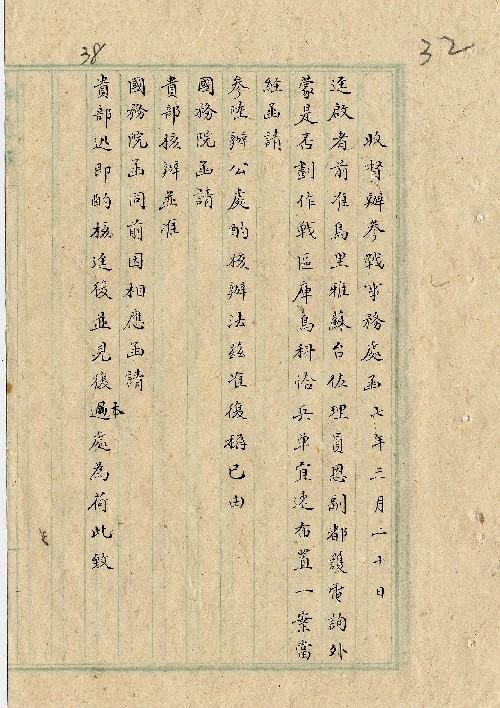 32
38
收督辦參戰事務處函七年三月二十日
逕啟者前准烏里雅蘇台佐理員恩副都護電詢外
蒙是否劃作戰區庫烏科恰兵單宜速布置一案當
經函請
參陸辦公處酌核辦法茲准復稱已由
國務院函請
貴部核辦並准
國務院函同前因相應函請
貴部迅即酌核逕復並見復過本處為荷此致